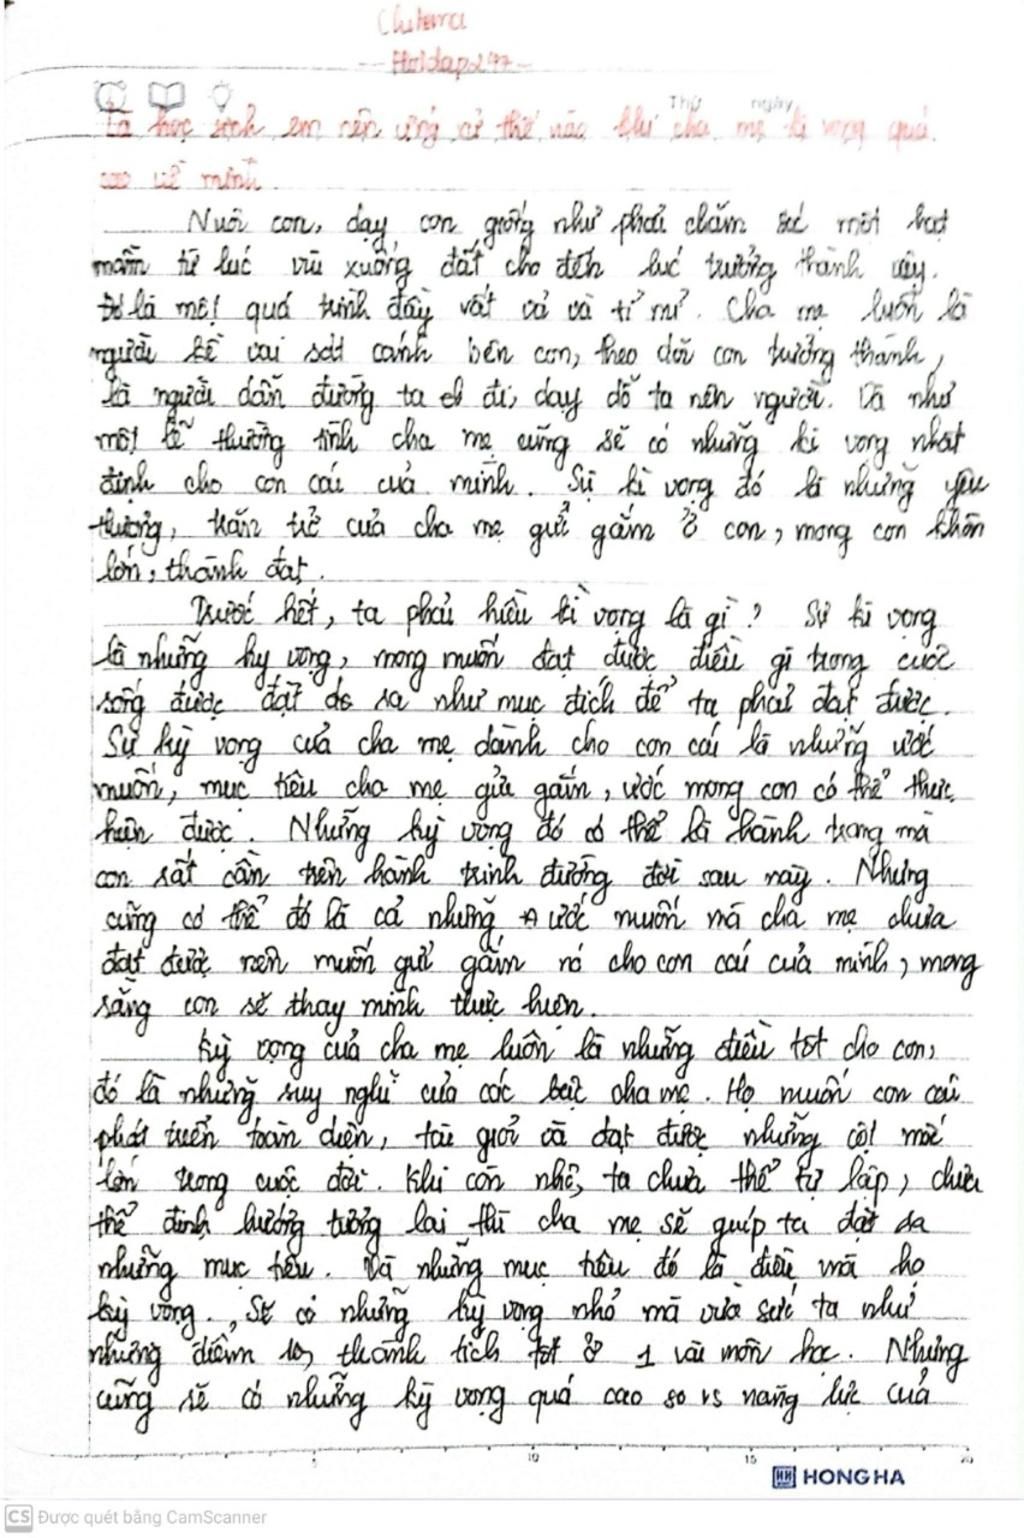 Hoidap247
Thứ ngày
Là học sinh em nên ứng xử thế nào khi cha mẹ kì vọng quá
cao về mình.
Nuôi con, dạy con giống như phải chăm sóc một hạt
mầm từ lúc vùi xuống đất cho đến lúc trưởng thành vậy.
Đó là một quá trình đầy vất vả và tỉ mỉ. Cha mẹ luôn là
người kề vai sát cánh bên con, theo dõi con trưởng thành,
là người dẫn đường ta đi, dạy dỗ ta nên người. Và như
một lẽ thường tình cha mẹ cũng sẽ có những kì vọng nhất
định cho con cái của mình. Sự kì vọng đó là những yêu
thương, trăn trở của cha mẹ gửi gắm ở con, mong con khôn
lớn, thành đạt.
Trước hết, ta phải hiểu kì vọng là gì? Sự kì vọng
là những hy vọng, mong muốn đạt được điều gì trong cuộc
sống được đặt ra như mục đích để ta phải đạt được.
Sự kỳ vọng của cha mẹ dành cho con cái là những ước
muốn, mục tiêu cha mẹ gửi gắm, ước mong con có thể thực
hiện được. Những kỳ vọng đó có thể là hành trang mà
con rất cần trên hành trình đường đời sau này. Nhưng
cũng có thể đó là cả những ước muốn mà cha mẹ chưa
đạt được nên muốn gửi gắm nó cho con cái của mình, mong
rằng con sẽ thay mình thực hiện.
Kỳ vọng của cha mẹ luôn là những điều tốt cho con,
đó là những suy nghĩ của các bậc cha mẹ. Họ muốn con cái
phát triển toàn diện, tài giỏi và đạt được những cột mốc
lớn trong cuộc đời. Khi còn nhỏ, ta chưa thể tự lập, chưa
thể định hướng tương lai thì cha mẹ sẽ giúp ta đặt ra
những mục tiêu. Và những mục tiêu đó là điều mà họ
kỳ vọng. Sẽ có những kỳ vọng nhỏ mà vừa sức ta như
những điểm 10, thành tích tốt ở 1 vài môn học. Nhưng
cũng sẽ có những kỳ vọng quá cao so vs năng lực của
5 10 15 20
HONG HA
CS Được quét bằng CamScanner